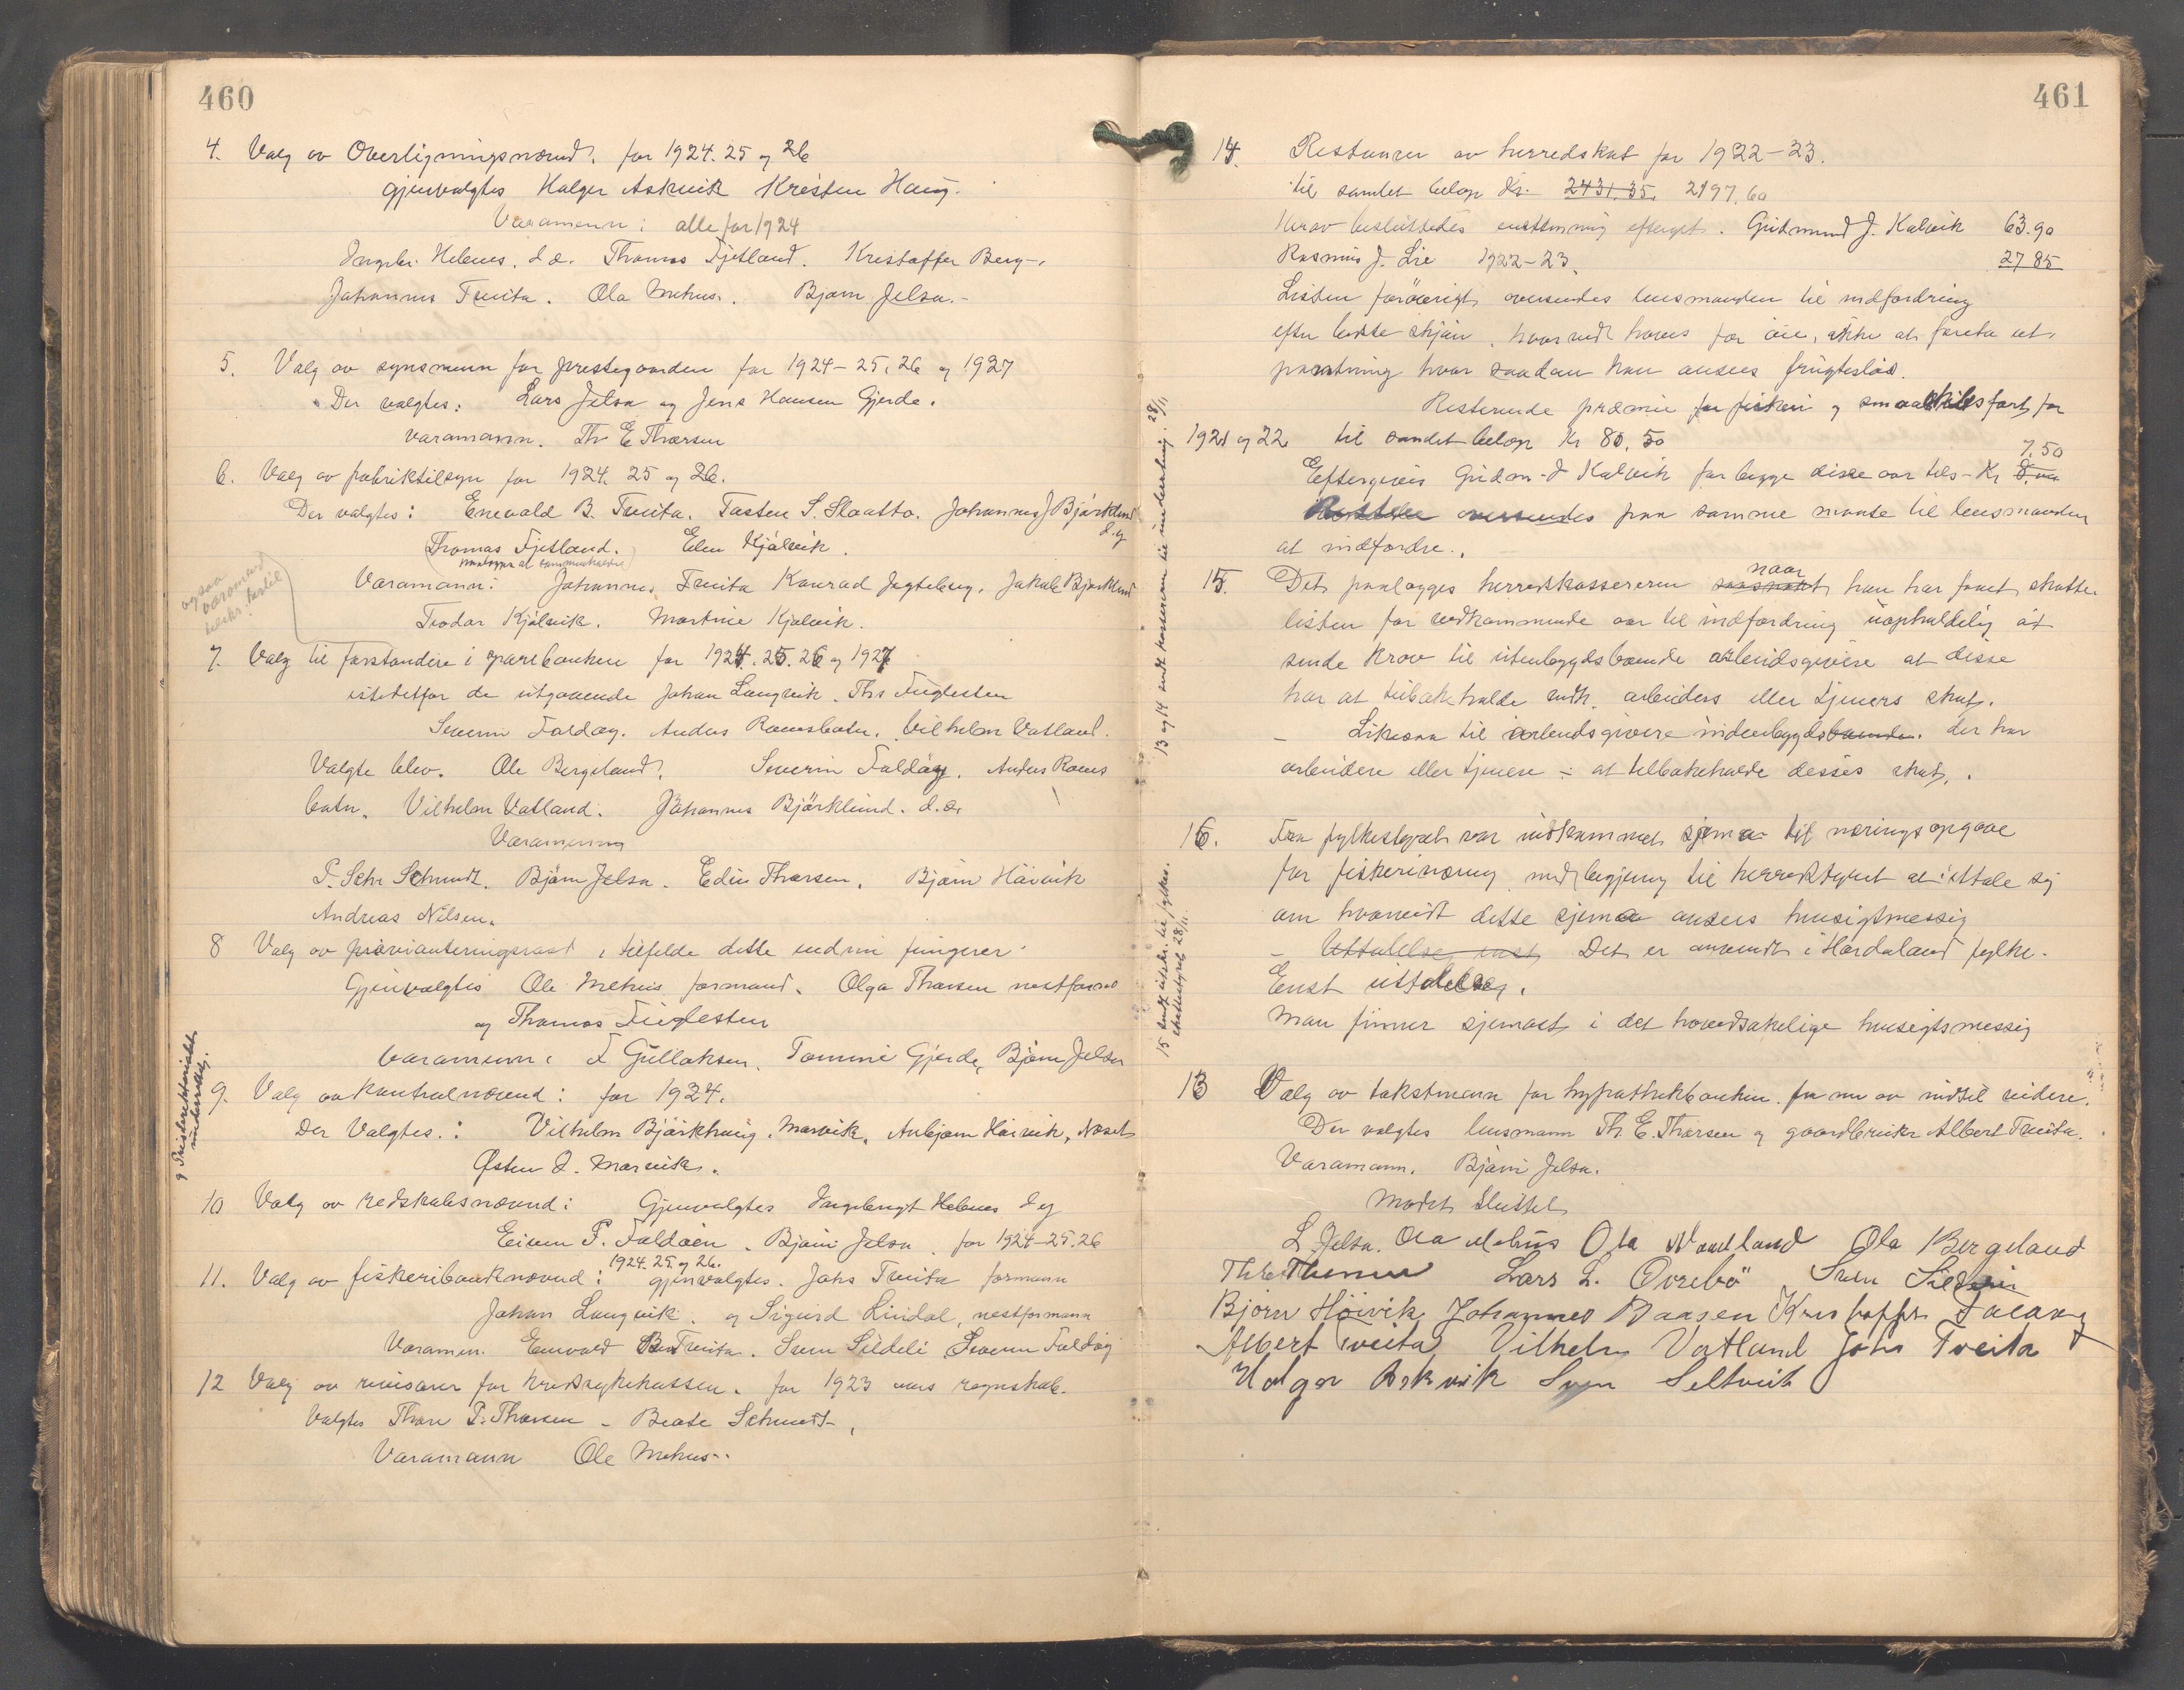 460
4. Valg av Overligningsnævnd. for 1924. 25 og 26
gjenvalgtes Holger Askvik Kristen Haug.
Varamenn: alle for 1924
Ingebr. Helenes. d.æ. Thomas Fjetland. Kristoffer Berg-.
Johannes Tveita. Ola Mehus. Bjørn Jelsa.-
5. Valg av synsmenn for prestegaarden for 1924-25, 26 og 1927
Der valgtes: Lars Jelsa og Jens Hansen Gjerde.
varamann. Th E Thorsen
6. Valg av fabriktilsyn for 1924. 25 og 26.
Der valgtes: Enevald B. Tveita. Tasten S. Slaatto. Johannes J Bjørklund d.y
Thomas Fjetland. Elen Kjølvik.
paalægges at sammenkalde
ogsaa varamænd
Varamann: Johannes Tveita Konrad Jegteberg, Jakob Bjørklund
Teodor Kjølvik. Martine Kjølvik.
7. Valg til forstandere i sparebanken for 1924. 25. 26 og 1927
istedetfor de utgaaende Johan Langvik. Ths Fuglesten
Severin Foldøy. Anders Ramsbotn. Vilhelm Vatland.
Valgte blev. Ole Bergeland. Severin Foldøy. Anders Rams
botn. Vilhelm Vatland. Johannes Bjørklund. d.æ.
Varamenn
P. Schr Schmidt. Bjørn Jelsa. Edin Thorsen. Bjørn Høivik
Andreas Nilsen.
8 Valg av provianteringsraad i tilfelde dette endnu fungerer.
Gjenvalgtes Ole Mehus formand. Olga Thorsen nestform
og Thomas Fuglesten
Varamenn: T Gullaksen. Tommi Gjerde, Bjørn Jelsa
9. Valg av kontrolnævnd: for 1924.
Der Valgtes.: Vilhelm Bjørkhaug. Marvik. Anbjørn Høivik, Næset
Østen O. Marvik.
10 Valg av redskabsnævnd: Gjenvalgtes Ingebregt Helenes d y
Eivin P. Foldøen. Bjørn Jelsa. for 1924-25.26
11. Valg av fiskeribanknævnd: 1924. 25 og 26. gjenvalgtes. Johs Tveita formann
Johan Langvik. og Sigurd Lindal, nestformann
Varamen. Enevald B. Tveita. Sven Sildeli Severin Foldøy
12 Valg av revisorer for kredssykekassen. for 1923 aars regnskab.
Valgtes Thore P. Thorsen - Beate Schmidt.
Varamann Ole Mehus.
461
14. Restancer av herredskat for 1922-23.
til samlet beløp Kr. 2431.35. 2197.60
Herav besluttedes enstemmig eftergit. Gudmund J. Kalvik 63.90
Rasmus J. Lie 1922-23. 27 85
Listen forøvrigt oversendes lensmanden til indfordring
efter bedste skjøn, hvorved haves for øie, ikke at foreta ut.
pantning hvor saadan kan ansees frugtesløs.
Resterende præmie for fiskeri og smaaskibsfart for
1921 og 22 til samlet beløp Kr 80,50
Eftergives Gudm. J Kalvik for begge disse aar tils- Kr 7.50
Restene oversendes paa samme maate til lensmanden
at indfordre.
13 og 14 sendt kassereren til inddrivning. 28/11
15. Det paalægges herredskassereren naar han har faaet skatte
listen for vedkommende aar til indfordring uopholdelig at
sende krav til utenbygdsboende arbeidsgivere at disse
har at tilbakeholde vedk. arbeiders eller tjeners skat.
- Likesaa til arbeidsgivere indenbygdsboende. der har
arbeidere eller tjenere - at tilbakeholde desses skat.
16. Fra fylkesstyret var indkommet sjema til næringsopgave
for fiskerinæring med begjæring til herredstyret at uttale sig
om hvorvidt dette sjema ansees hensigtmessig
- Uttalelse enst Det er anvendt i Hordaland fylke.
Enst uttalelse.
Man finner sjemaet i det hovedsakelige hensigtsmessig
13 Valg av takstmenn for hypothekbanken. fra nu av indtil videre.
Der valgtes lensmann Th. E. Thorsen og gaardbruker Albert Tveita.
Varamann. Bjørn Jelsa.
Mødet sluttet
L Jelsa. Ola Mehus Ola Vandland Ola Bergeland
Th. E. Thorsen Lars L. Ovrebö Sven Sildeli
Bjørn Höivik Johannes Baagen Kristoffer Foldøy
Albert Tveita Vilhelm Vatland Johs Tveita
Holger Askvik Sven Seltveit